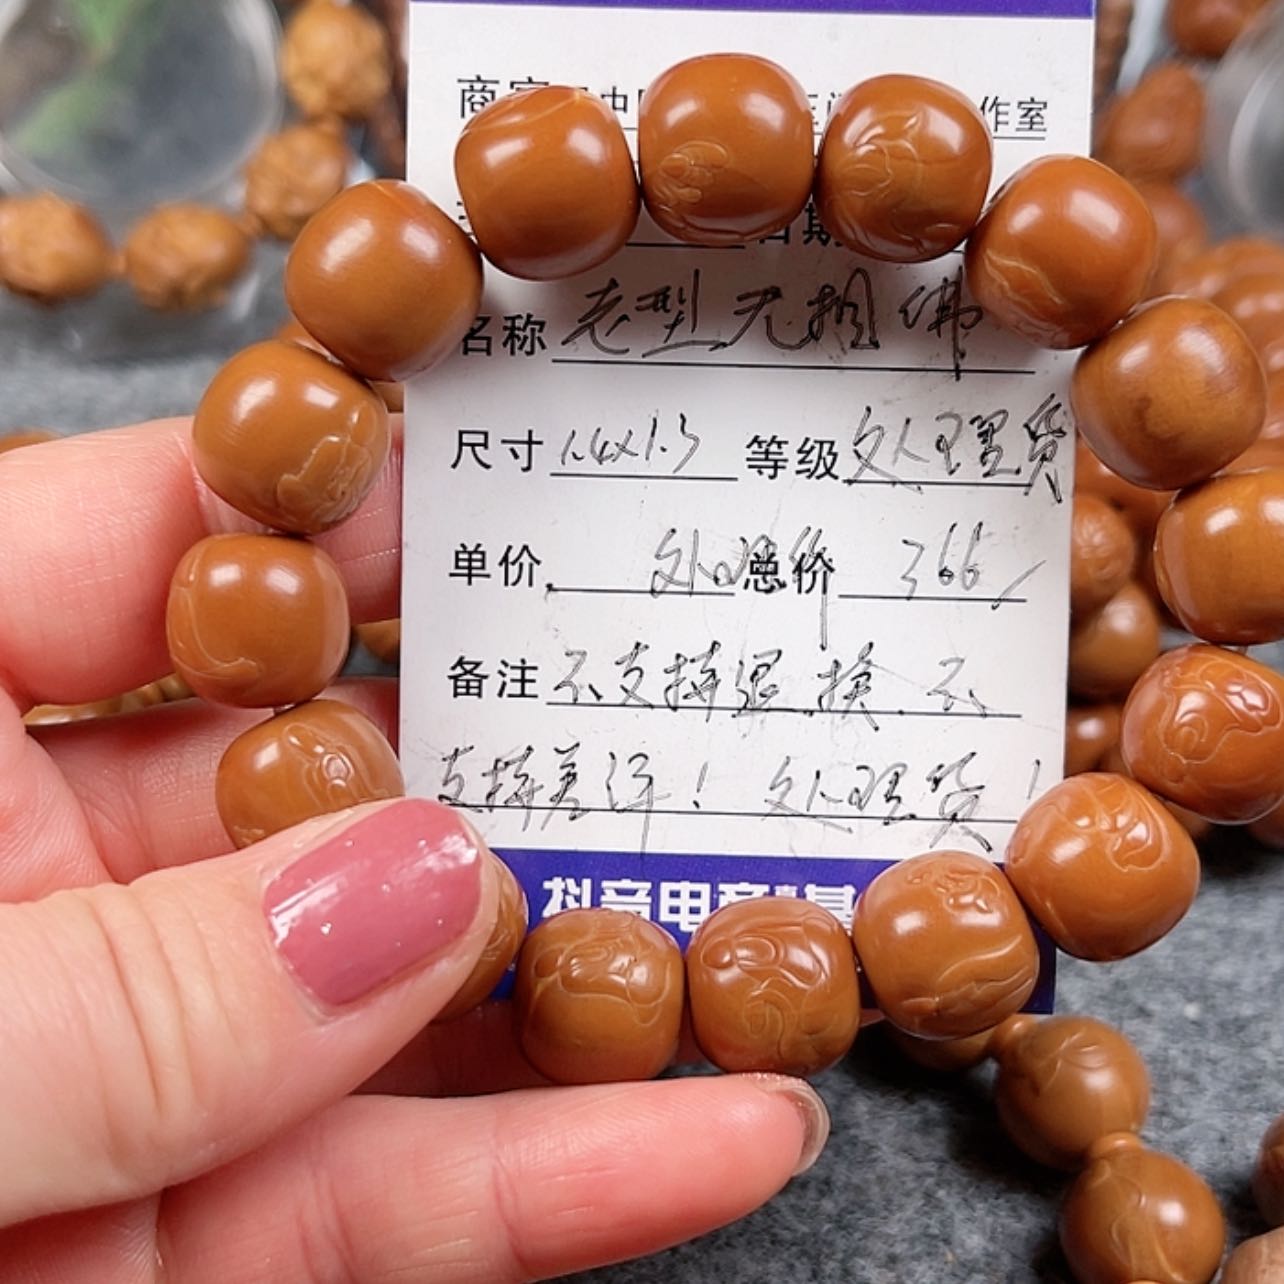 作室
日期
名称 老型无相佛
尺寸 1.4x1.3 等级 处理货
单价 处理 总价 366
备注 不支持退换 不
支持差评！ 处理货！
抖音电商